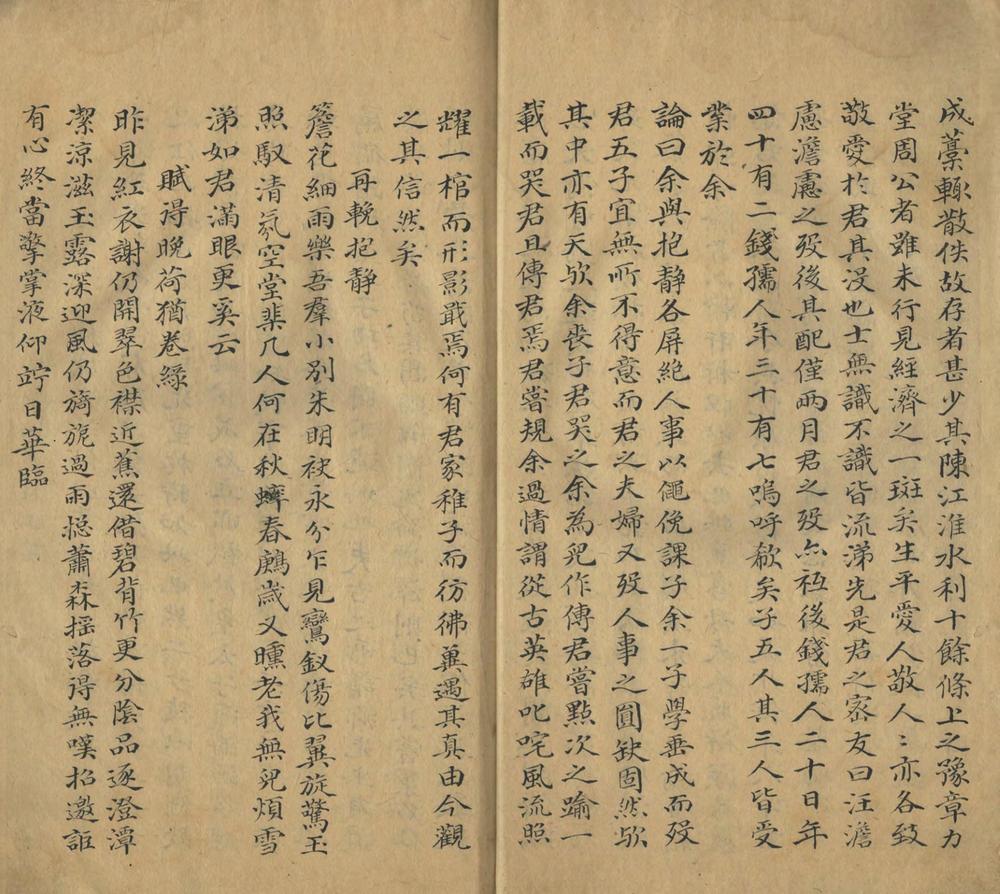 成藁輒散佚故存者甚少其陳江淮水利十餘條上之豫章力
堂周公者雖未行見經濟之一斑矣生平愛人敬人〻亦各致
敬愛於君其沒也士無識不識皆流涕先是君之密友曰汪澹
慮澹慮之歿後其配僅兩月君之歿亦祗後錢孺人二十日年
四十有二錢孺人年三十有七嗚呼欷矣子五人其三人皆受
業於余
論曰余與抱靜各屏絕人事以僶俛課子余一子學垂成而歿
君五子宜無所不得意而君之夫婦又歿人事之圓缺固然歟
其中亦有天歟余喪子君哭之余為兒作傳君嘗點次之踰一
載而哭君且傳君焉君嘗規余過情謂從古英雄叱咤風流照
耀一棺而形影戢焉何有君家稚子而彷彿冀遇其真由今觀
之其信然矣
再輓抱靜
簷花細雨樂吾羣小別朱明袂永分乍見鸞釵傷比翼旋驚玉
照馭清氛空堂棐几人何在秋蟀春鷓歲又曛老我無兒煩雪
涕如君滿眼更奚云
賦得晚荷猶卷綠
昨見紅衣謝仍開翠色襟近蕉還借碧背竹更分陰品逐澄潭
潔涼滋玉露深迎風仍旖旎過雨挹蕭森搖落得無嘆招邀詎
有心終當擎掌液仰竚日華臨